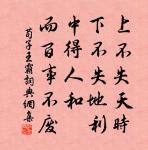 上不失天時
下不失地利
中得人和
而百事不廢
荀子王霸詞典網集